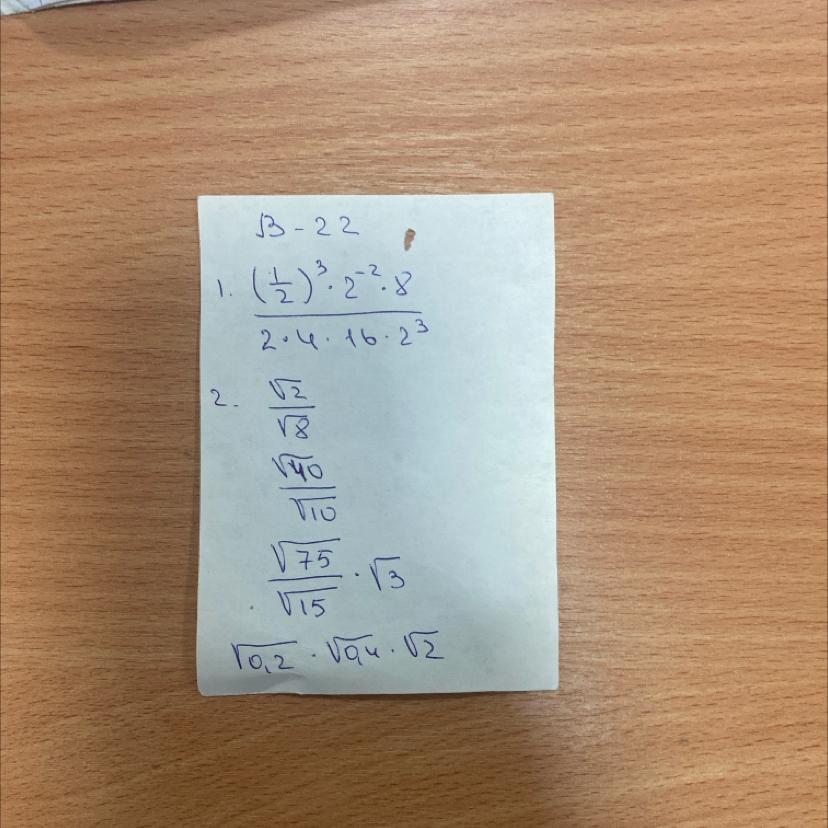 В-22
1. (1/2)³ · 2⁻² · 8
2 · 4 · 16 · 2³
2. √2
√8
√40
√10
√75
√15 · √3
√0,2 · √0,4 · √2